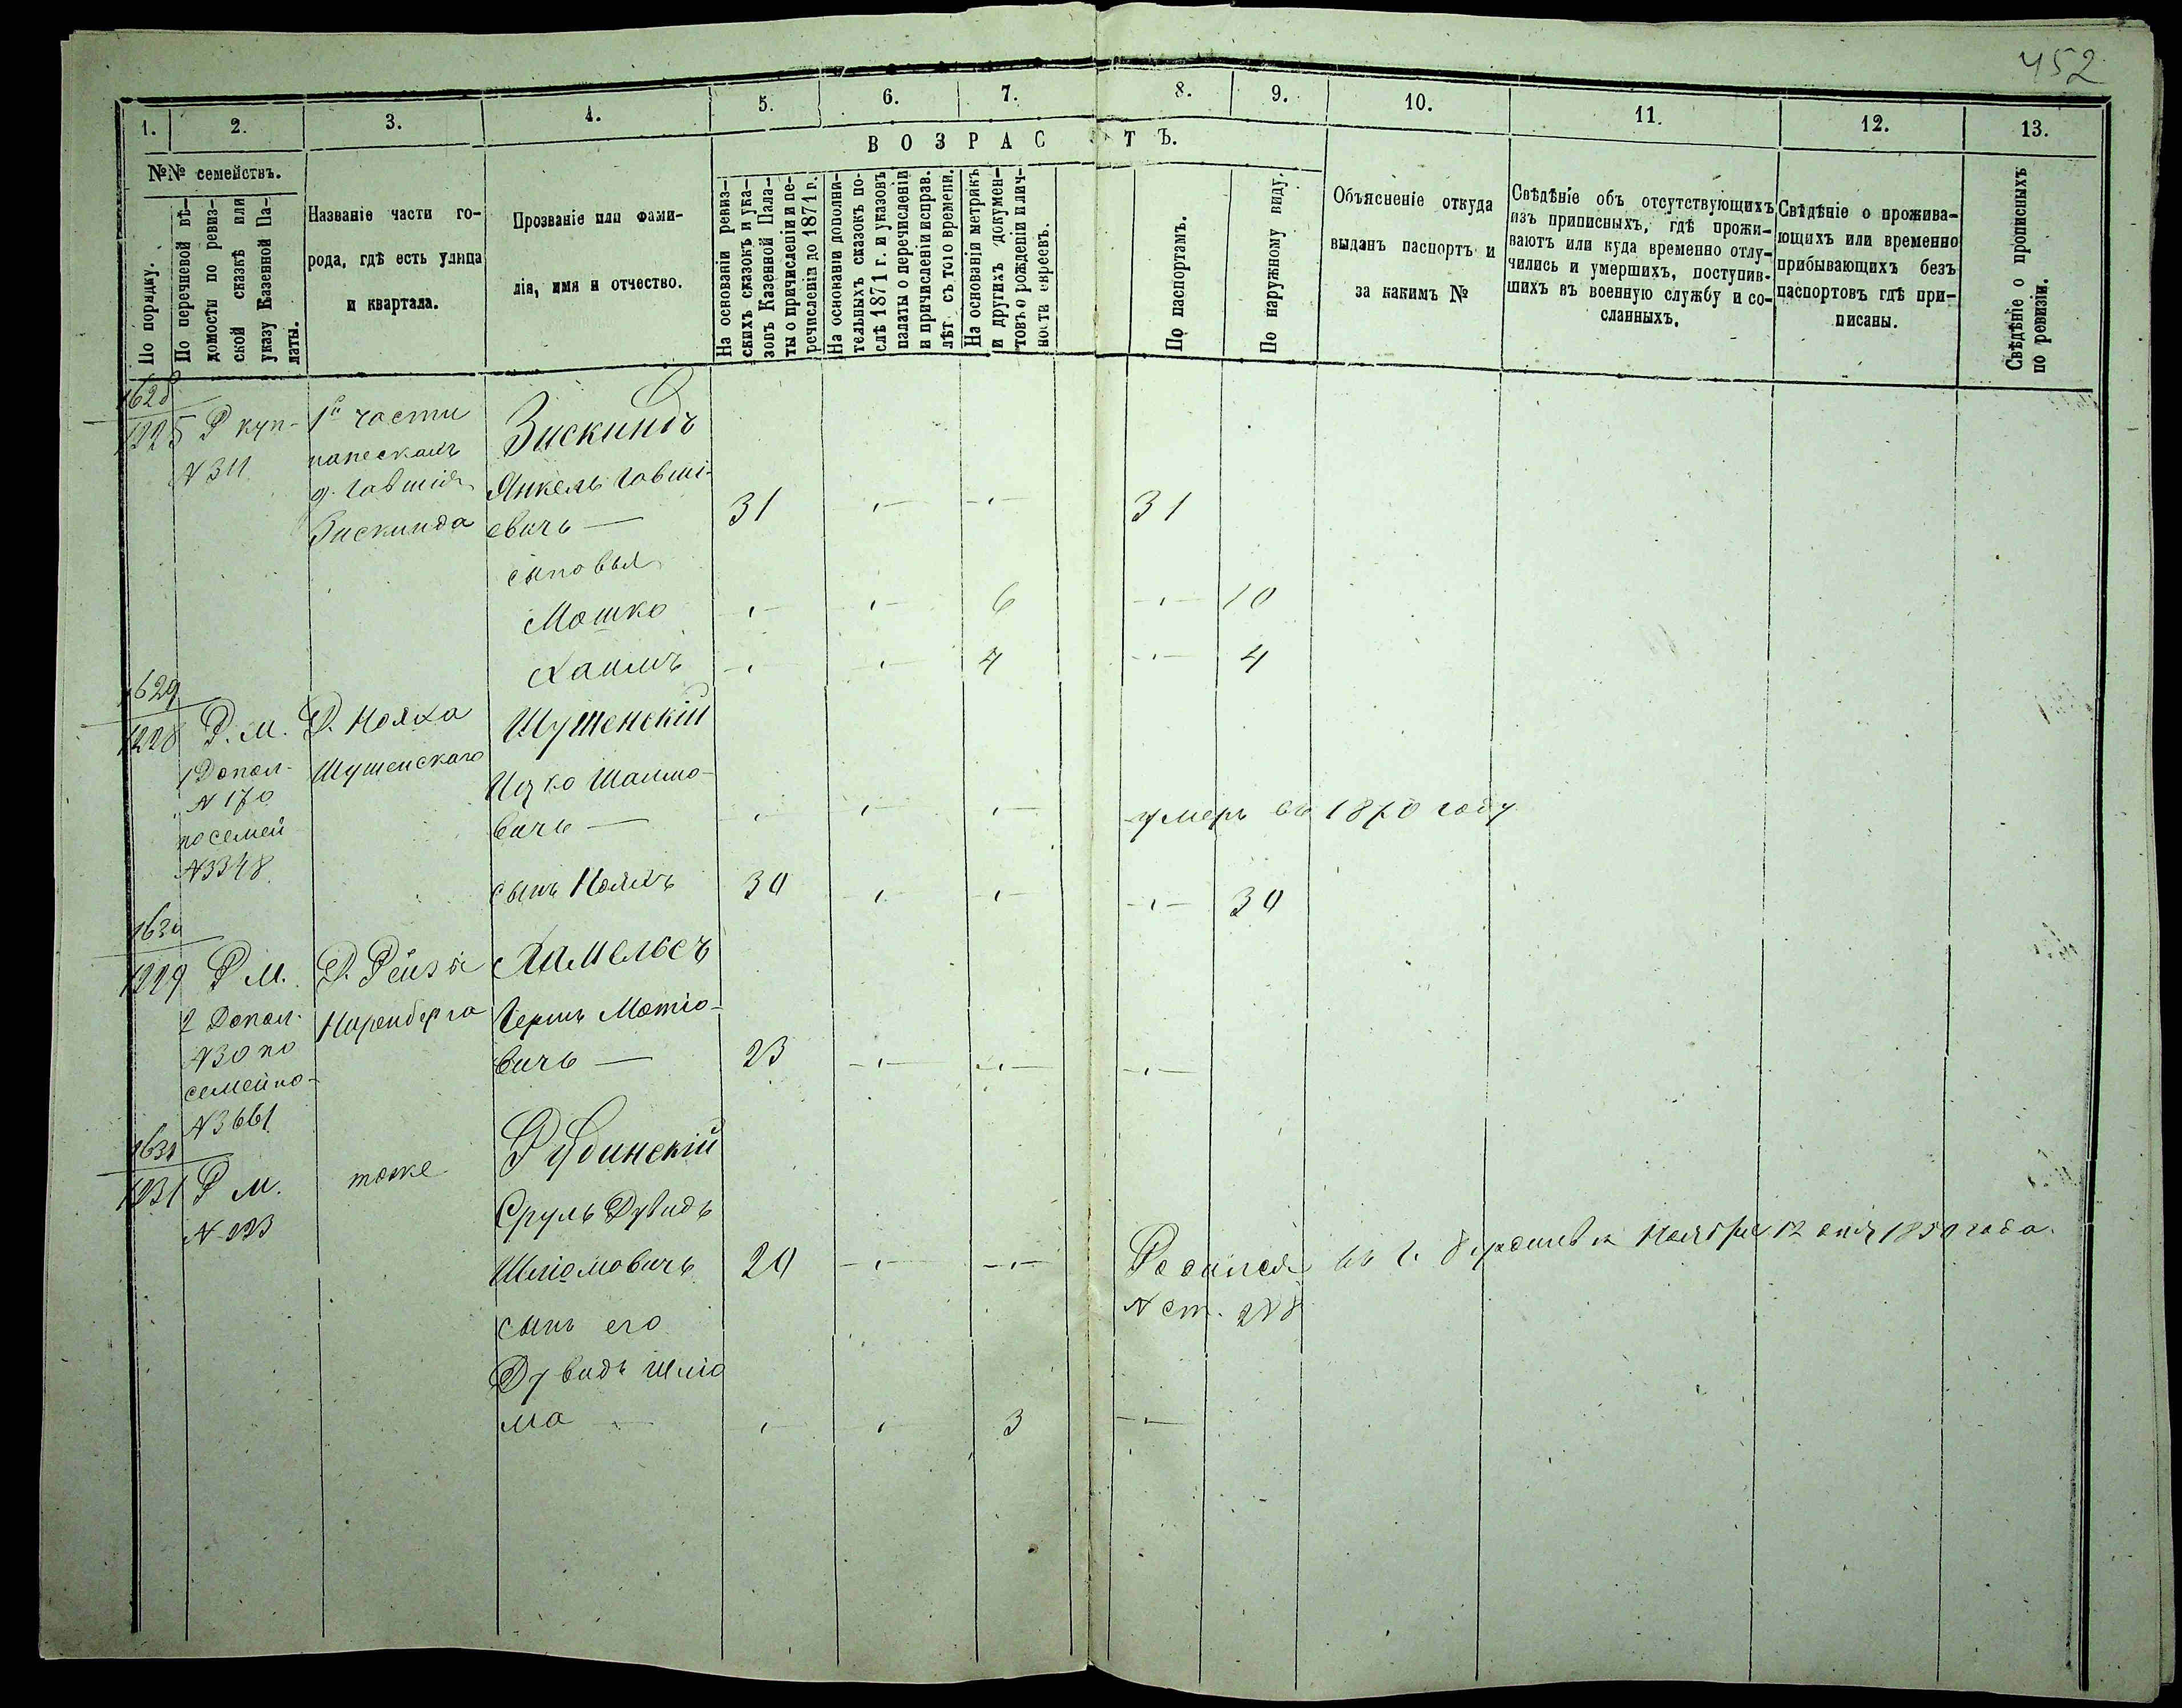 452
1. 2. 3. 4. 5. 6. 7. 8. 9. 10. 11. 12. 13.
ВОЗРАСТЪ.
№№ семействъ.
По порядку.
По перечневой вѣ-
домости по ревиз-
ской сказкѣ или
указу Казенной Па-
латы.
Названіе части го-
рода, гдѣ есть улица
и квартала.
Прозваніе или фами-
лія, имя и отчество.
На основаніи ревиз-
скихъ сказокъ и ука-
зовъ Казенной Пала-
ты о причисленіи и пе-
речисленіи до 1871 г.
На основаніи дополни-
тельныхъ сказокъ по-
слѣ 1871 г. и указовъ
палаты о перечисленіи
и причисленіи исправ.
лѣт съ того времени.
На основаніи метрикъ
и другихъ докумен-
товъ о рожденіи и лич-
ности евреевъ.
По паспортомъ.
По наружному виду.
Объясненіе откуда
выданъ паспортъ и
за какимъ №
Свѣдѣніе объ отсутствующихъ
изъ приписныхъ, гдѣ прожи-
ваютъ или куда временно отлу-
чились и умершихъ, поступив-
шихъ въ военную службу и со-
сланныхъ.
Свѣдѣніе о прожива-
ющихъ или временно
прибывающихъ безъ
паспортовъ гдѣ при-
писаны.
Свѣдѣніе о прописныхъ
по ревизіи.
1628
1225 Р куп- 1й части Зискиндъ
N 311
д. Говшія Янкель Говші-
Зискинда евичь — 31 31
сыновья
Мошко 6 10
Хаимъ 4 4
1629
1228 Р. М. Д. Нояха Шушенскій
1 Допол- Шушенскаго Ицко Шаимо-
N 170
по семей вичь — умеръ въ 1870 году
N 3348
сынъ Нояхъ 30 30
1630
1229 Р М. Д. Рейзы Хамелисъ
2 Допол. Ниренберга Гершъ Мотіо-
N 30 по вичь — 23
семейно-
N 3661
1631
1231 Р М. тоже Рубинскій
N 223 Сруль Дувидъ
Шліомовичь 20 Родился въ г. Ноября 12 дня 1850 года.
сынъ его N ст. 228
Дувидъ Шліо
ма — 3